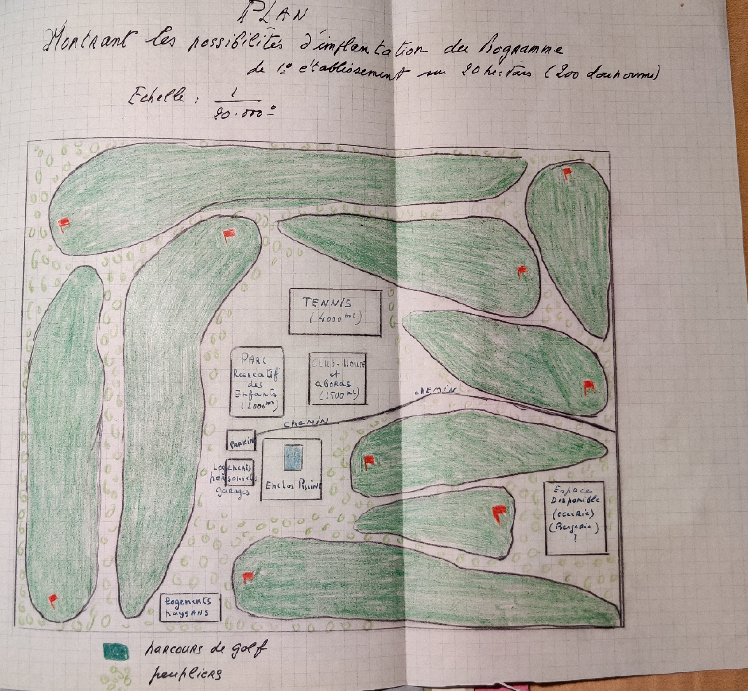 PLAN
Montrant les possibilités d'implantation du Programme
de 1 établissement sur 20 hectares (200 dounoums)
Echelle : 1
20.000
TENNIS
(4000 m²)
PARC
Recreatif
des
Enfants
CLUB-House
et
abords
(1500 m²)
CHEMIN
CHEMIN
PARKING
Logements
personnel
garages
Enclos Piscine
Espace
Disponible
(écurie)
(Bergerie)
?
Logements
PAYSANS
parcours de golf
peupliers